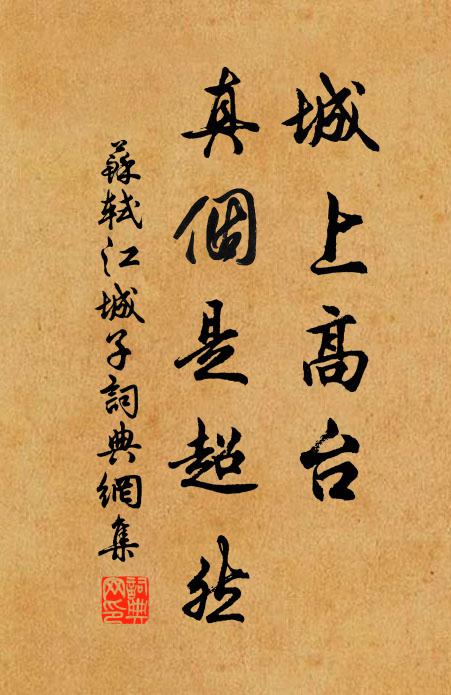 城上高台
真個是超然
蘇軾江城子詞典網集
詞典網印